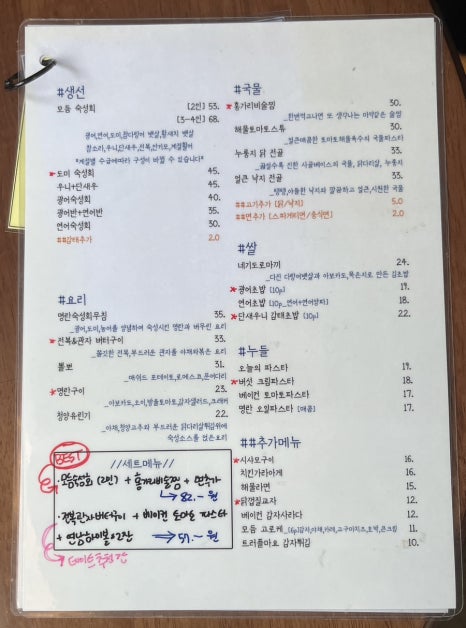 #생선
모듬 숙성회 [2인] 53.
[3~4인] 68.
광어,연어,도미,참다랑어 뱃살,황새치 뱃살
참소라,우니,단새우,전복,안키모,계절활어
*계절별 수급에따라 구성이 바뀔 수 있습니다*
*도미 숙성회 45.
우니+단새우 45.
광어숙성회 40.
광어반+연어반 35.
연어숙성회 30.
##감태추가 2.0
#요리
명란숙성회무침 35.
_광어,도미,농어를 양념하여 숙성시킨 명란과 버무린 요리
*전복&관자 버터구이 33.
_쫄깃한 전복,부드러운 관자를 야채와볶은 요리
뽈뽀 31.
_매쉬드 포테이토,로메스코,문어다리
*명란구이 23.
_아보카도,오이,방울토마토,감자샐러드,크래커
청양유린기 22.
_야채,청양고추와 부드러운 닭다리살튀김위에
숙성소스를 얹은요리
BEST
//세트메뉴//
·모듬숙성회 (2인) + 홍가리비술찜 + 면추가
→ 82.-원
·전복관자버터구이 + 베이컨 토마토 파스타
+ 연남하이볼×2잔 → 57.-원
#국물
*홍가리비술찜 30.
_한번먹고나면 또 생각나는 마약같은 술찜
해물토마토스튜 30.
_얼큰매콤한 토마토해물육수의 국물파스타
누룽지 닭 전골 35.
_꼼살수록 진한 사골베이스의 국물, 닭다리살, 누룽지
얼큰 낙지 전골 35.
_탱탱,야들한 낙지와 깔끔하고 얼큰,시원한 국물
##고기추가 [닭/낙지] 5.0
##면추가 [스파게티면/중식면] 2.0
#쌀
네기도로마끼 24.
_다진 다랑어뱃살과 아보카도,묵은지로 만든 김초밥
*광어초밥 [10p] 19.
연어초밥 [10p_연어+연어양파] 18.
*단새우니 감태초밥 [10p] 22.
#누들
오늘의 파스타 19.
*버섯 크림파스타 18.
베이컨 토마토파스타 17.
명란 오일파스타 [매콤] 17.
##추가메뉴
*시사모구이 16.
치킨가라아게 16.
해물라면 15.
*닭껍질교자 12.
베이컨 감자사라다 12.
모듬 고로케 11.
트러플마요 감자튀김 10.